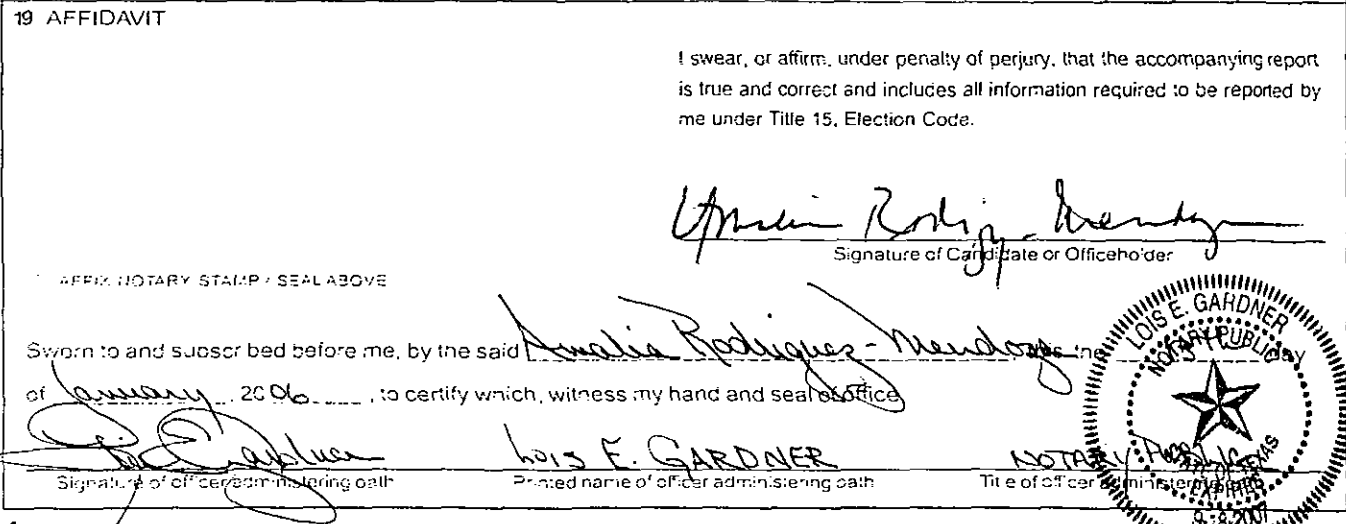 19 AFFIDAVIT
I swear, or affirm, under penalty of perjury, that the accompanying report
is true and correct and includes all information required to be reported by
me under Title 15, Election Code.
Amalia Rodriguez-Mendoza
Signature of Candidate or Officeholder
AFFIX NOTARY STAMP / SEAL ABOVE
Sworn to and subscribed before me, by the said Amalia Rodriguez-Mendoza this the day
of January, 2006, to certify which, witness my hand and seal of office
Signature of officer administering oath
LOIS E. GARDNER
Printed name of officer administering oath
NOTARY PUBLIC
Title of officer administering oath
LOIS E. GARDNER
NOTARY PUBLIC
STATE OF TEXAS
EXPIRES
9-8-2007